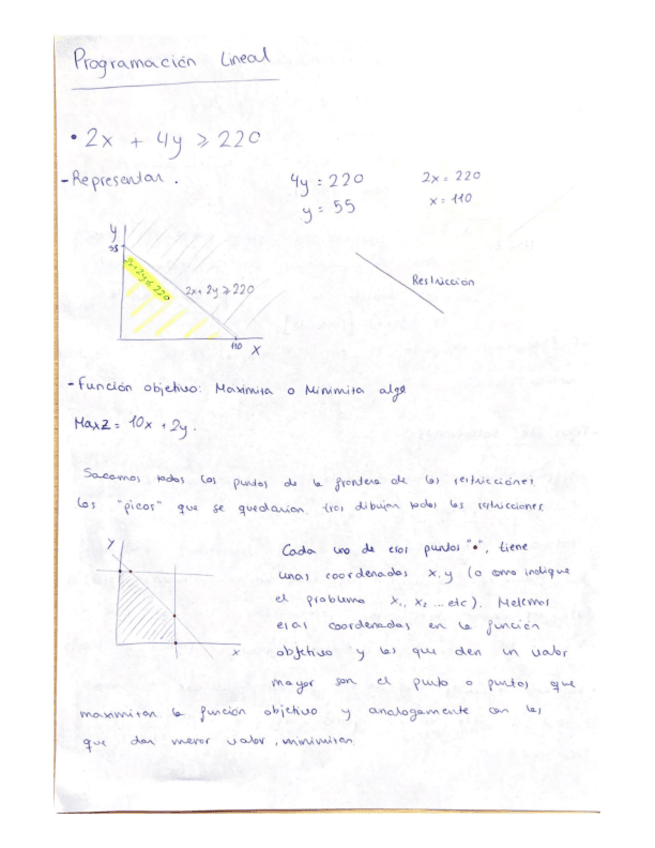 Programación Lineal
• 2x + 4y ≥ 220
- Representar.
4y = 220
y = 55
2x = 220
x = 110
y
55
2x+2y≤220
2x+2y≥220
110
x
Restricción
- Función objetivo: Maximita o Minimita algo
Max Z = 10x + 2y.
Sacamos todos los puntos de la frontera de las restricciones
los "picos" que se quedarian tras dibujar todas las restricciones
y
x
Cada uno de esos puntos "•", tiene
unas coordenadas x, y (o como indique
el problema x₁, x₂ ... etc). Metemos
esas coordenadas en la función
objetivo y las que den un valor
mayor son el punto o puntos que
maximitan la función objetivo y analogamente con las
que dan menor valor, minimitan